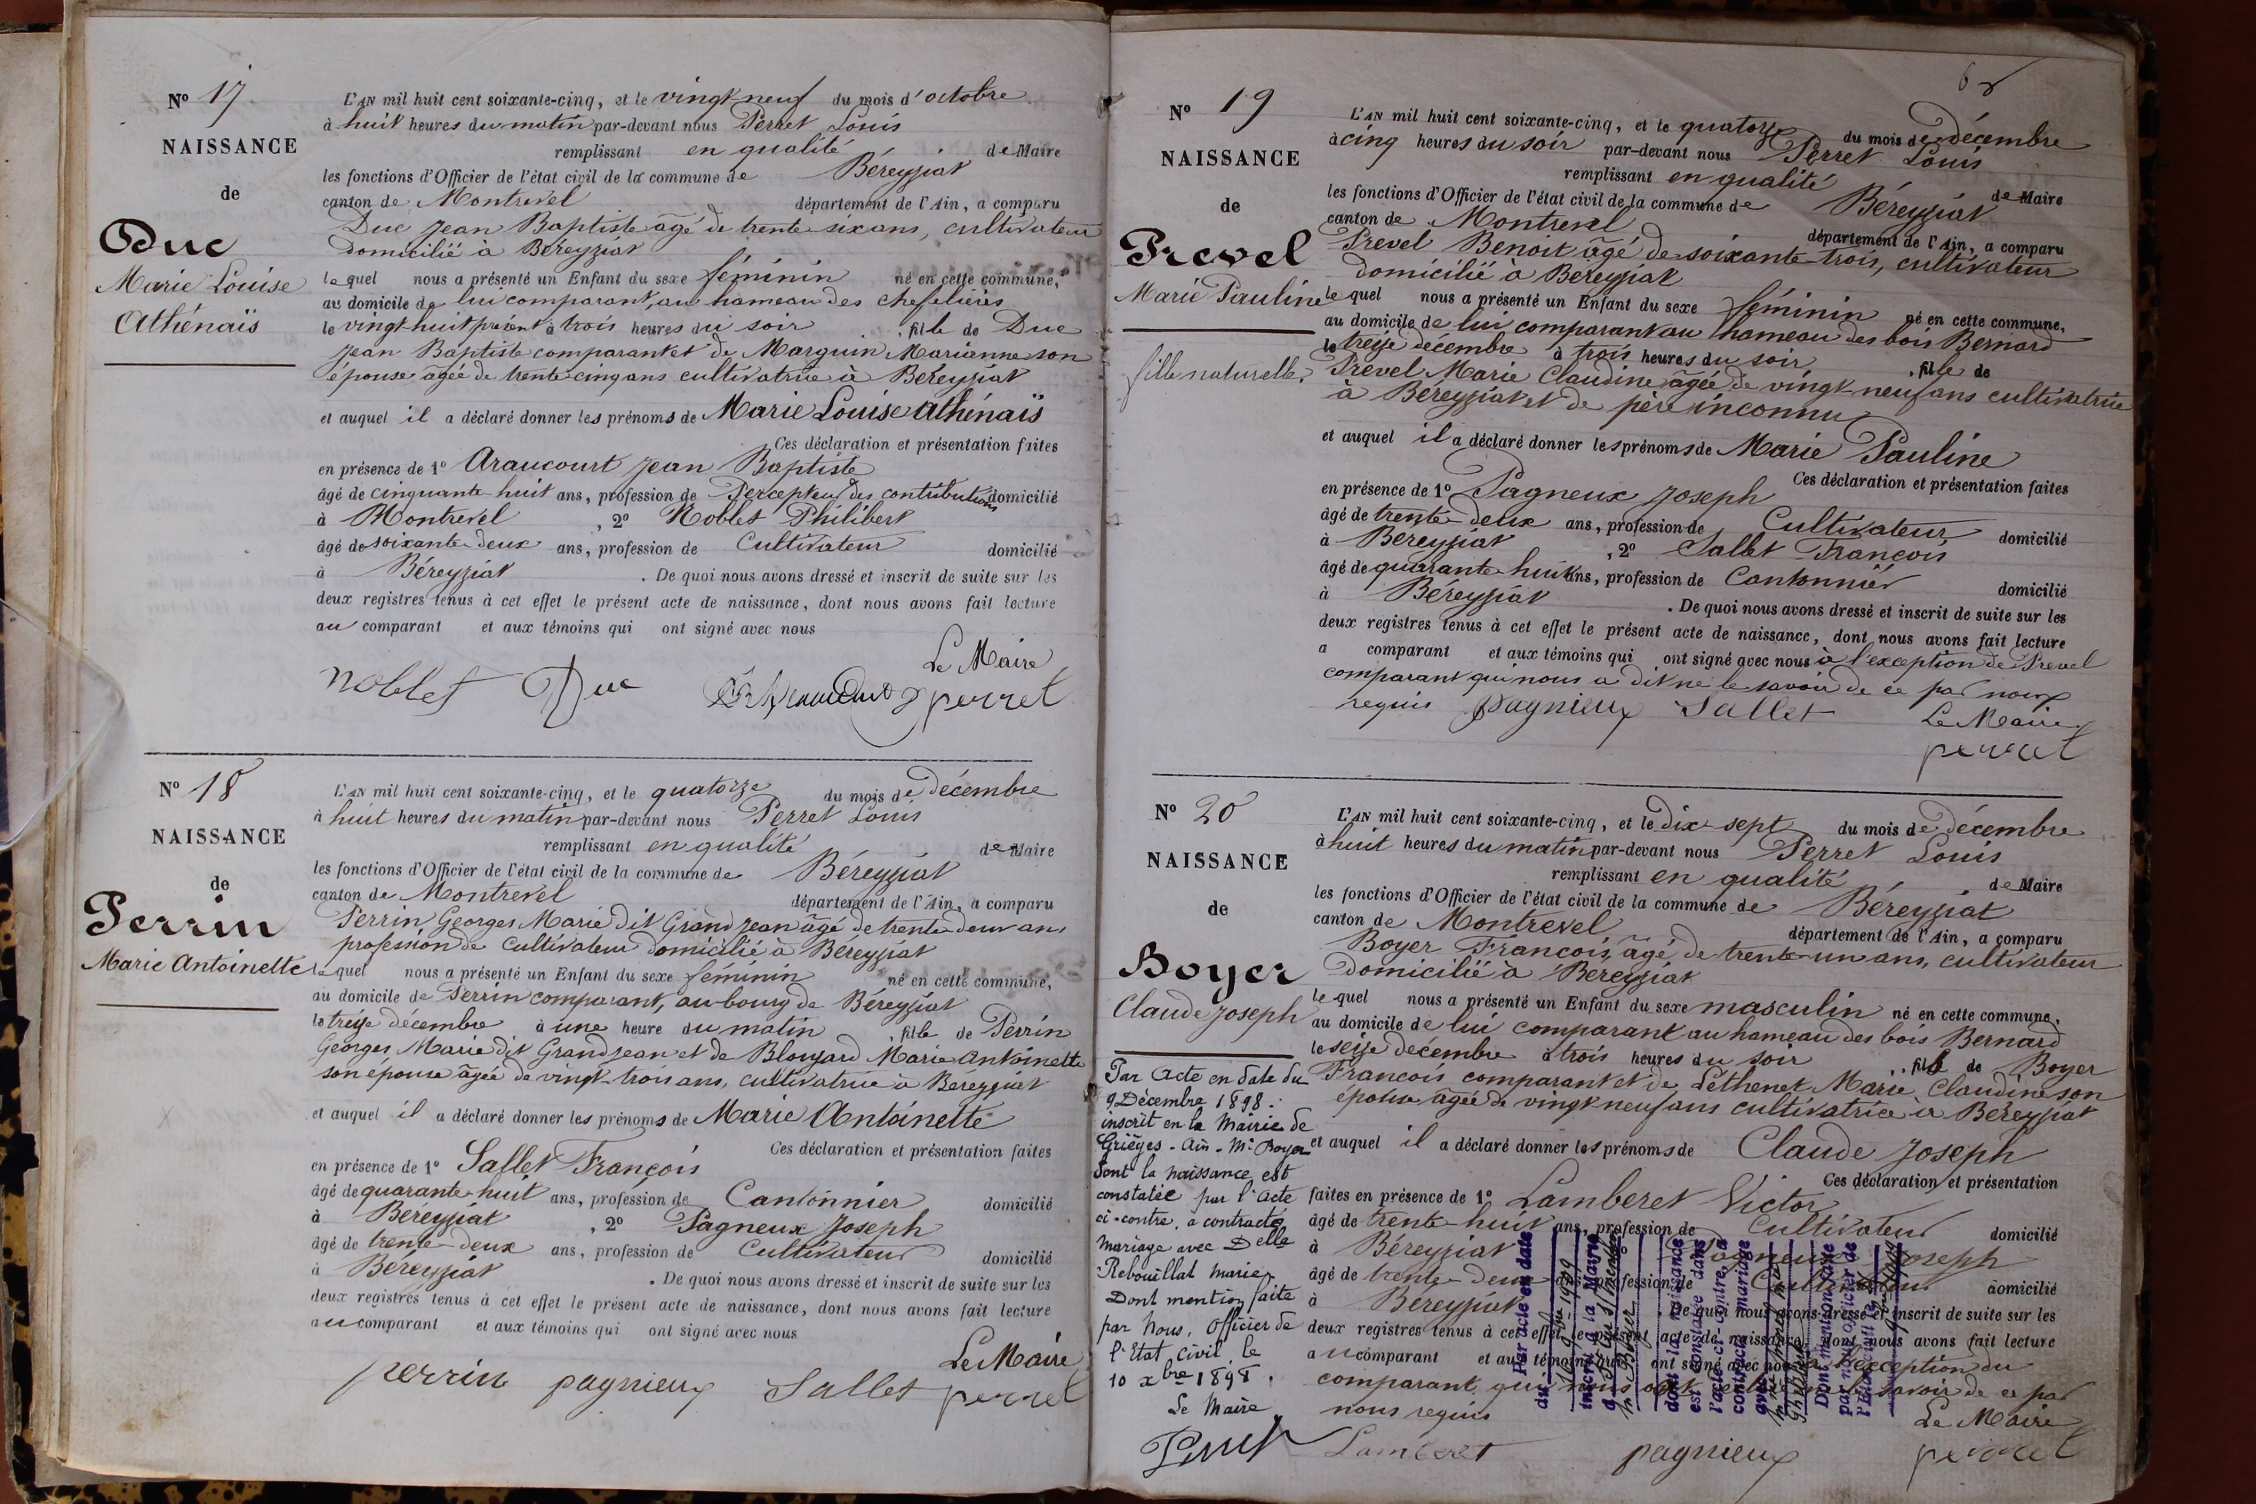 Nº 17
NAISSANCE
de
Duc
Marie Louise
Athénaïs
L'AN mil huit cent soixante-cinq, et le vingt neuf du mois d'octobre
à huit heures du matin par-devant nous Perret Louis
remplissant en qualité de Maire
les fonctions d'Officier de l'état civil de la commune de Béreyziat
canton de Montrevel département de l'Ain, a comparu
Duc Jean Baptiste âgé de trente six ans, cultivateur
domicilié à Béreyziat
lequel nous a présenté un Enfant du sexe féminin né en cette commune,
au domicile de lui comparant, au hameau des
le vingt huit présent à trois heures du soir , fille de Duc
Jean Baptiste comparant et de Marguin Marianne son
épouse âgée de trente cinq ans cultivatrice à Béreyziat
et auquel il a déclaré donner les prénoms de Marie Louise Athénaïs
Ces déclaration et présentation faites
en présence de 1º Araucourt Jean Baptiste
âgé de cinquante-huit ans, profession de Percepteur des contributions domicilié
à Montrevel , 2º Noblet Philibert
âgé de soixante deux ans, profession de Cultivateur domicilié
à Béreyziat . De quoi nous avons dressé et inscrit de suite sur les
deux registres tenus à cet effet le présent acte de naissance, dont nous avons fait lecture
au comparant et aux témoins qui ont signé avec nous
Le Maire
noblet Duc perret
Nº 18
NAISSANCE
de
Perrin
Marie Antoinette
L'AN mil huit cent soixante-cinq, et le quatorze du mois de décembre
à huit heures du matin par-devant nous Perret Louis
remplissant en qualité de Maire
les fonctions d'Officier de l'état civil de la commune de Béreyziat
canton de Montrevel département de l'Ain, a comparu
Perrin Georges Marie dit Grand Jean âgé de trente deux ans
profession de cultivateur domicilié à Béreyziat
lequel nous a présenté un Enfant du sexe féminin né en cette commune,
au domicile de Perrin comparant, au bourg de Béreyziat
le treize décembre à une heure du matin , fille de Perrin
Georges Marie dit Grand Jean et de Marie Antoinette
son épouse âgée de vingt-trois ans, cultivatrice à Béreyziat
et auquel il a déclaré donner les prénoms de Marie Antoinette
Ces déclaration et présentation faites
en présence de 1º Sallet François
âgé de quarante-huit ans, profession de Cantonnier domicilié
à Béreyziat , 2º Pagneux Joseph
âgé de trente-deux ans, profession de Cultivateur domicilié
à Béreyziat . De quoi nous avons dressé et inscrit de suite sur les
deux registres tenus à cet effet le présent acte de naissance, dont nous avons fait lecture
au comparant et aux témoins qui ont signé avec nous
Le Maire
perrin pagnieux Sallet perret
Nº 19
NAISSANCE
de
Prevel
Marie Pauline
fille naturelle.
L'AN mil huit cent soixante-cinq, et le quatorze du mois de décembre
à cinq heures du soir par-devant nous Perret Louis
remplissant en qualité de Maire
les fonctions d'Officier de l'état civil de la commune de Béreyziat
canton de Montrevel département de l'Ain, a comparu
Prevel Benoit âgé de soixante-trois, cultivateur
domicilié à Béreyziat
lequel nous a présenté un Enfant du sexe féminin né en cette commune,
au domicile de lui comparant au hameau des bois Bernard
le treize décembre à trois heures du soir , fille de
Prevel Marie Claudine âgée de vingt-neuf ans cultivatrice
à Béreyziat et de père inconnu
et auquel il a déclaré donner les prénoms de Marie Pauline
Ces déclaration et présentation faites
en présence de 1º Pagneux Joseph
âgé de trente-deux ans, profession de Cultivateur domicilié
à Béreyziat , 2º Sallet François
âgé de quarante-huit ans, profession de Cantonnier domicilié
à Béreyziat . De quoi nous avons dressé et inscrit de suite sur les
deux registres tenus à cet effet le présent acte de naissance, dont nous avons fait lecture
a comparant et aux témoins qui ont signé avec nous à l'exception de Prevel
comparant qui nous a dit ne le savoir de ce par nous
requis pagnieux Sallet Le Maire
perret
Nº 20
NAISSANCE
de
Boyer
Claude Joseph
Par Acte en date du
9 Décembre 1898
inscrit en la Mairie de
Grièges - Ain - Mr Boyer
dont la naissance est
constatée par l'acte
ci-contre, a contracté
mariage avec Delle
Rebouillat Marie
Dont mention faite
par Nous, Officier de
l'Etat civil, le
10 xbre 1898.
Le Maire
L'AN mil huit cent soixante-cinq, et le dix-sept du mois de décembre
à huit heures du matin par-devant nous Perret Louis
remplissant en qualité de Maire
les fonctions d'Officier de l'état civil de la commune de Béreyziat
canton de Montrevel département de l'Ain, a comparu
Boyer François, âgé de trente-un ans, cultivateur
domicilié à Béreyziat
lequel nous a présenté un Enfant du sexe masculin né en cette commune,
au domicile de lui comparant au hameau des bois Bernard
le seize décembre à trois heures du soir , fils de Boyer
François comparant et de Léthenet Marie Claudine son
épouse âgée de vingt neuf ans cultivatrice à Béreyziat
et auquel il a déclaré donner les prénoms de Claude Joseph
Ces déclaration et présentation
faites en présence de 1º Lamberet Victor
âgé de trente-huit ans, profession de Cultivateur domicilié
à Béreyziat 2º Pagneux Joseph
âgé de trente-deux ans, profession de Cultivateur domicilié
à Béreyziat . De quoi nous avons dressé et inscrit de suite sur les
deux registres tenus à cet effet le présent acte de naissance, dont nous avons fait lecture
au comparant et aux témoins qui ont signé avec nous à l'exception du
comparant qui nous a dit ne le savoir de ce par
nous requis Le Maire
Lamberet pagnieux perret
Par acte en date
du
inscrit à la Mayrie
de
M. Boyer
dont la naissance
est constatée dans
l'acte ci-contre, a
contracté mariage
avec
Dont mention faite
par nous officier de
l'Etat civil